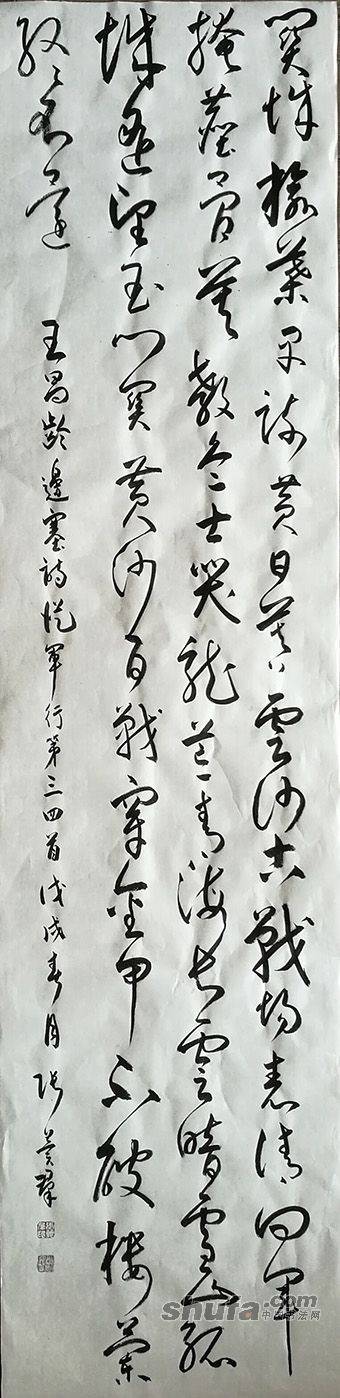 關城榆葉早疎黄日暮雲沙古戰場表請回軍
掩塵骨莫教兵士哭龍荒青海長雲暗雪山孤
城遥望玉門關黄沙百戰穿金甲不破樓蘭
終不還
王昌齡邊塞詩從軍行第三四首戊戌春月張
shufa.com
中国书法网